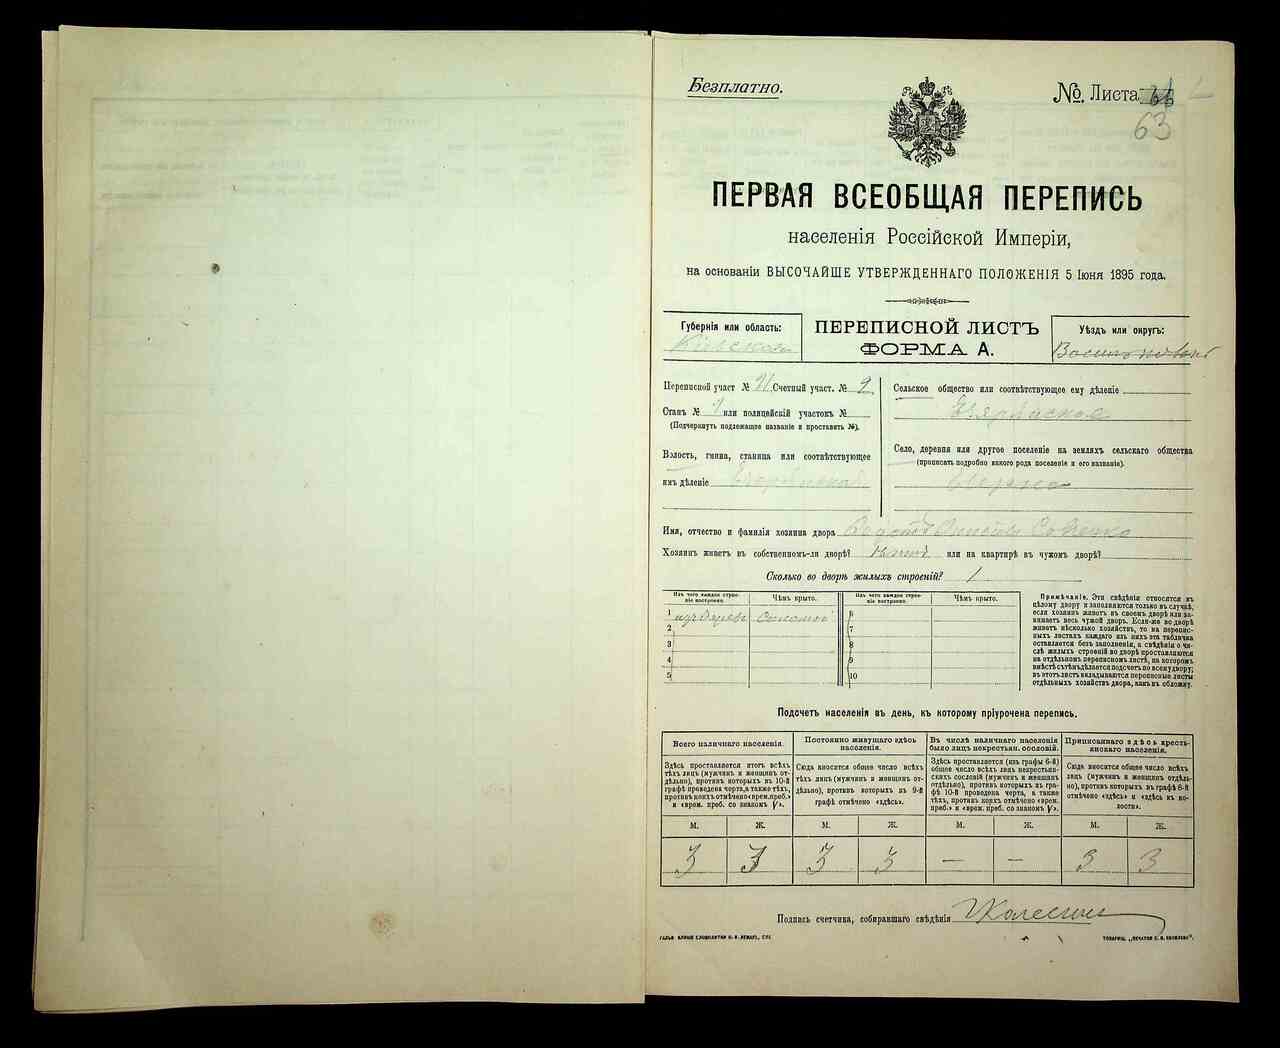 Безплатно.
№ Листа
63
ПЕРВАЯ ВСЕОБЩАЯ ПЕРЕПИСЬ
населенія Россійской Имперіи,
на основаніи ВЫСОЧАЙШЕ УТВЕРЖДЕННАГО ПОЛОЖЕНІЯ 5 Іюня 1895 года.
Губернія или область:
Кіевская
ПЕРЕПИСНОЙ ЛИСТЪ
ФОРМА А.
Уѣздъ или округъ:
Переписной участ № Счетный участ. № 9
Станъ № или полицейскій участокъ №
(Подчеркнуть подлежащее названіе и проставить №).
Волость, гмина, станица или соотвѣтствующее
имъ дѣленіе
Сельское общество или соотвѣтствующее ему дѣленіе
Село, деревня или другое поселеніе на земляхъ сельскаго общества
(прописать подробно какого рода поселеніе и его названіе).
Имя, отчество и фамилія хозяина двора
Хозяинъ живетъ въ собственномъ-ли дворѣ? или на квартирѣ въ чужомъ дворѣ?
Сколько во дворѣ жилыхъ строеній? 1
Изъ чего каждое строеніе построено.
Чѣмъ крыто.
Изъ чего каждое строеніе построено.
Чѣмъ крыто.
1 изъ дерева соломой
2
3
4
5
6
7
8
9
10
Примѣчаніе. Эти свѣдѣнія относятся къ
цѣлому двору и заполняются только въ случаѣ,
если хозяинъ живетъ въ своемъ дворѣ или за-
нимаетъ весь чужой дворъ. Если-же во дворѣ
живетъ нѣсколько хозяйствъ, то на перепис-
ныхъ листахъ каждаго изъ нихъ эта табличка
оставляется безъ заполненія, а свѣдѣнія о чи-
слѣ жилыхъ строеній во дворѣ проставляются
на отдѣльномъ переписномъ листѣ, на которомъ
вмѣстѣ съ тѣмъ дѣлается подсчетъ по всему двору;
въ этотъ листъ вкладываются переписные листы
отдѣльныхъ хозяйствъ двора, какъ въ обложку.
Подсчетъ населенія въ день, къ которому пріурочена перепись.
Всего наличнаго населенія.
Постоянно живущаго здѣсь
населенія.
Въ числѣ наличнаго населенія
было лицъ некрестьян. сословій.
Приписаннаго здѣсь кресть-
янскаго населенія.
Здѣсь проставляется итогъ всѣхъ
тѣхъ лицъ (мужчинъ и женщинъ от-
дѣльно), противъ которыхъ въ 10-й
графѣ проведена черта, а также тѣхъ,
противъ коихъ отмѣчено «врем. преб.»
и «врем. преб. со знакомъ V».
Сюда вносится общее число всѣхъ
тѣхъ лицъ (мужчинъ и женщинъ от-
дѣльно), противъ которыхъ въ 9-й
графѣ отмѣчено «здѣсь».
Здѣсь проставляется (изъ графы 6-й)
общее число всѣхъ лицъ некрестьян-
скихъ сословій (мужчинъ и женщинъ
отдѣльно), противъ которыхъ въ гра-
фѣ 10-й проведена черта, а также
тѣхъ, противъ коихъ отмѣчено «врем.
преб.» и «врем. преб. со знакомъ V».
Сюда вносится общее число всѣхъ
лицъ (мужчинъ и женщинъ отдѣль-
но), противъ которыхъ въ графѣ 8-й
отмѣчено «здѣсь» и «здѣсь къ во-
лости».
М. Ж. М. Ж. М. Ж. М. Ж.
3 3 3 3 — — 3 3
Подпись счетчика, собиравшаго свѣдѣнія